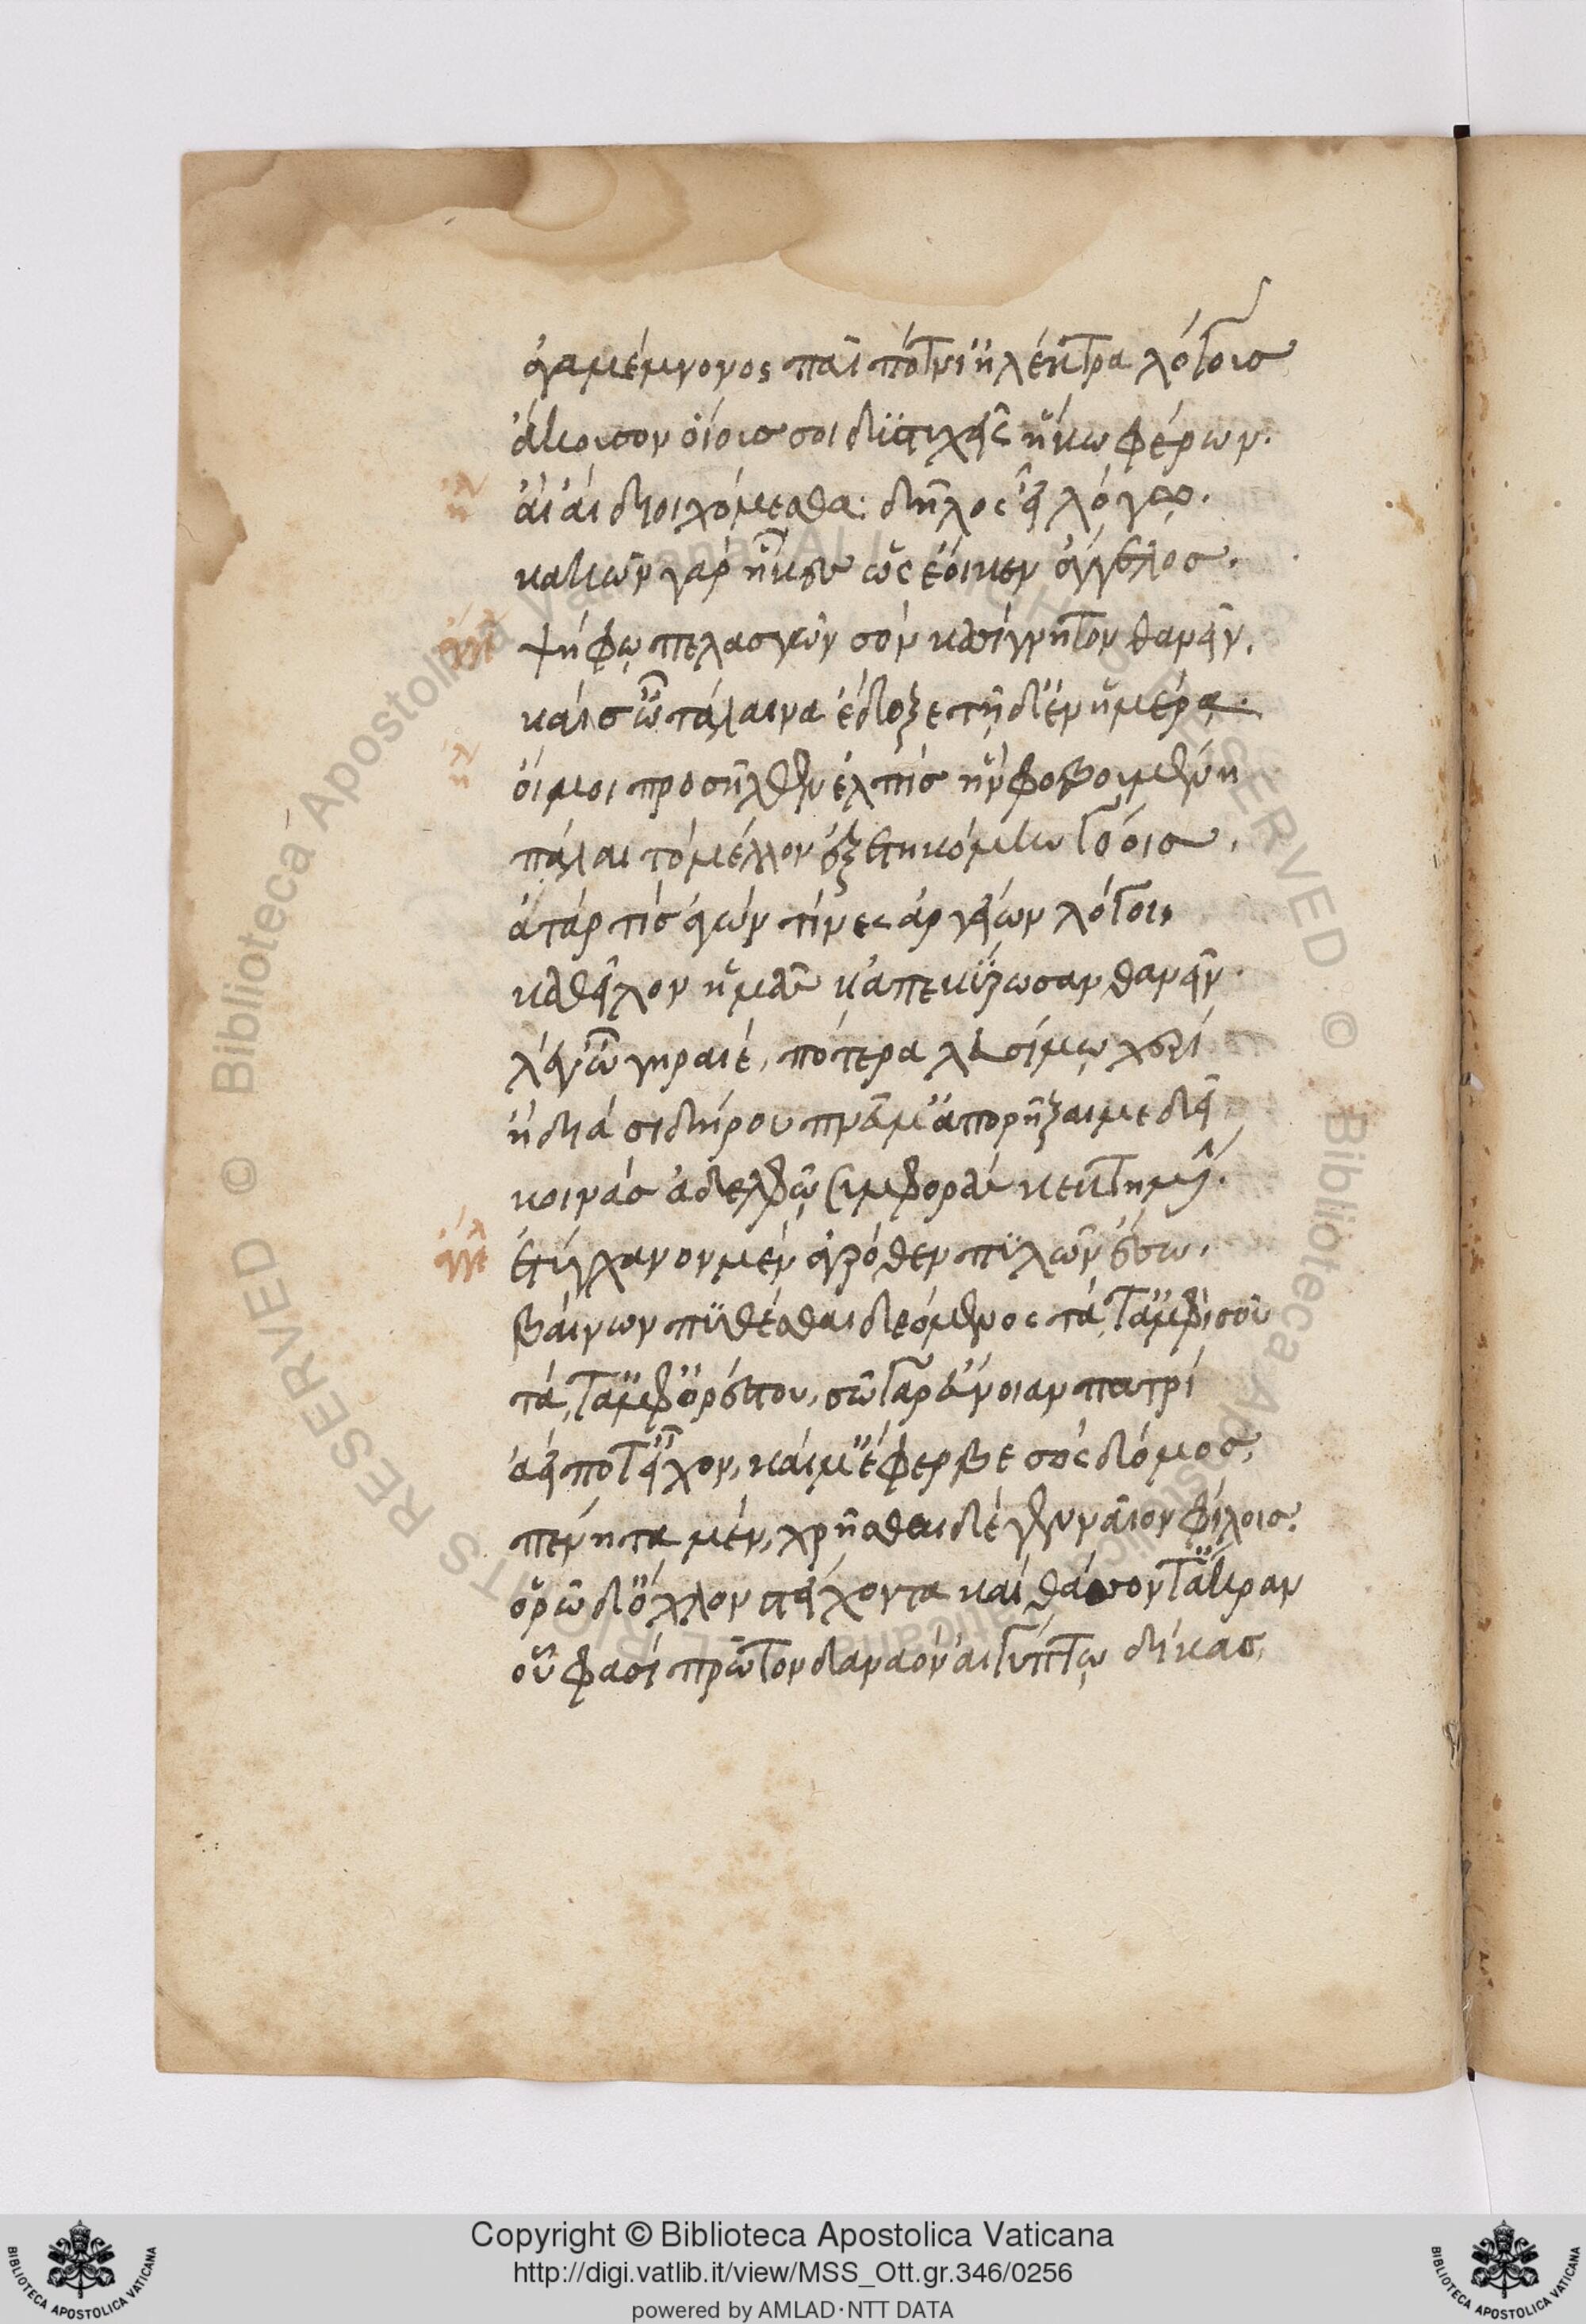 ἀγαμέμνονος παῖ πότνι ἠλέκτρα λόγους
ἄκουσον οὕς σοι δυστυχεῖς ἥκω φέρων.
ηλ αἲ αἲ διοιχόμεσθα: δῆλος εἶ λόγω.
κακῶν γὰρ ἥκεις ὡς ἔοικεν ἄγγελος.
ἄγγε ψήφω πελασγῶν σὸν κασίγνητον θανεῖν,
καὶ σὲ ὦ τάλαινα ἔδοξε τῆδ' ἐν ἡμέρα.
ηλ οἴμοι προσῆλθεν ἐλπὶς ἣν φοβουμένη
πάλαι τὸ μέλλον ἐξετηκόμην γόοις,
ἀτὰρ τίς ἀγὼν τίνες ἀργείων λόγοι
καθεῖλον ἡμᾶς κἀπεκύρωσαν θανεῖν.
λέγ' ὦ γηραιέ, πότερα λευσίμω χερὶ
ἢ διὰ σιδήρου πνεῦμ' ἀπορρῆξαί με δεῖ
κοινὰς ἀδελφῶ συμφορὰς κεκτημένην.
ἄγγε ἐτύγχανον μὲν ἀγρόθεν πυλῶν ἔσω,
βαίνων πυθέσθαι δεόμενος τά, τ' ἀμφὶ σοῦ
τά, τ' ἀμφ' ὀρέστου, σῶ γὰρ εὔνοιαν πατρὶ
ἀεί ποτ' εἶχον, καί μ' ἔφερβε σὸς δόμος,
πένητα μέν, χρῆσθαι δὲ γενναῖον φίλοις.
ὁρῶ δ' ὄχλον στείχοντα καὶ θάσσοντ' ἄκραν
οὗ φασὶ πρῶτον δαναὸν αἰγύπτω δίκας,
Copyright © Biblioteca Apostolica Vaticana
http://digi.vatlib.it/view/MSS_Ott.gr.346/0256
powered by AMLAD·NTT DATA
BIBLIOTECA APOSTOLICA VATICANA
BIBLIOTECA APOSTOLICA VATICANA